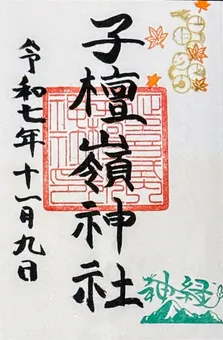 子檀嶺神社
令和七年十一月九日